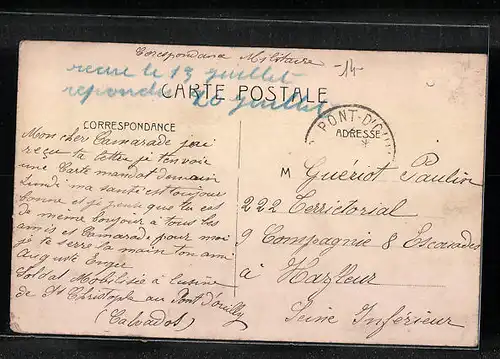 Corespondance Militaire
-14-
recue le 13 juillet
repondu 20 juillet
CARTE POSTALE
PONT-D'OUI
CORRESPONDANCE
ADRESSE
Mon cher Camarade j'ai
reçu ta lettre je t'envoie
une Carte mandat demain
Lundi ma santé est toujours
bonne et je pense que tu es
de même bonjour à tous les
amis et Camarade pour moi
je te serre la main ton ami
Auguste
Soldat Mobilisée à l'usine
de St Christophe au Pont d'ouilly
(Calvados)
M Guériot Paulin
222 Territorial
9 Compagnie 8 Escouades
à Harfleur
Seine Inférieur